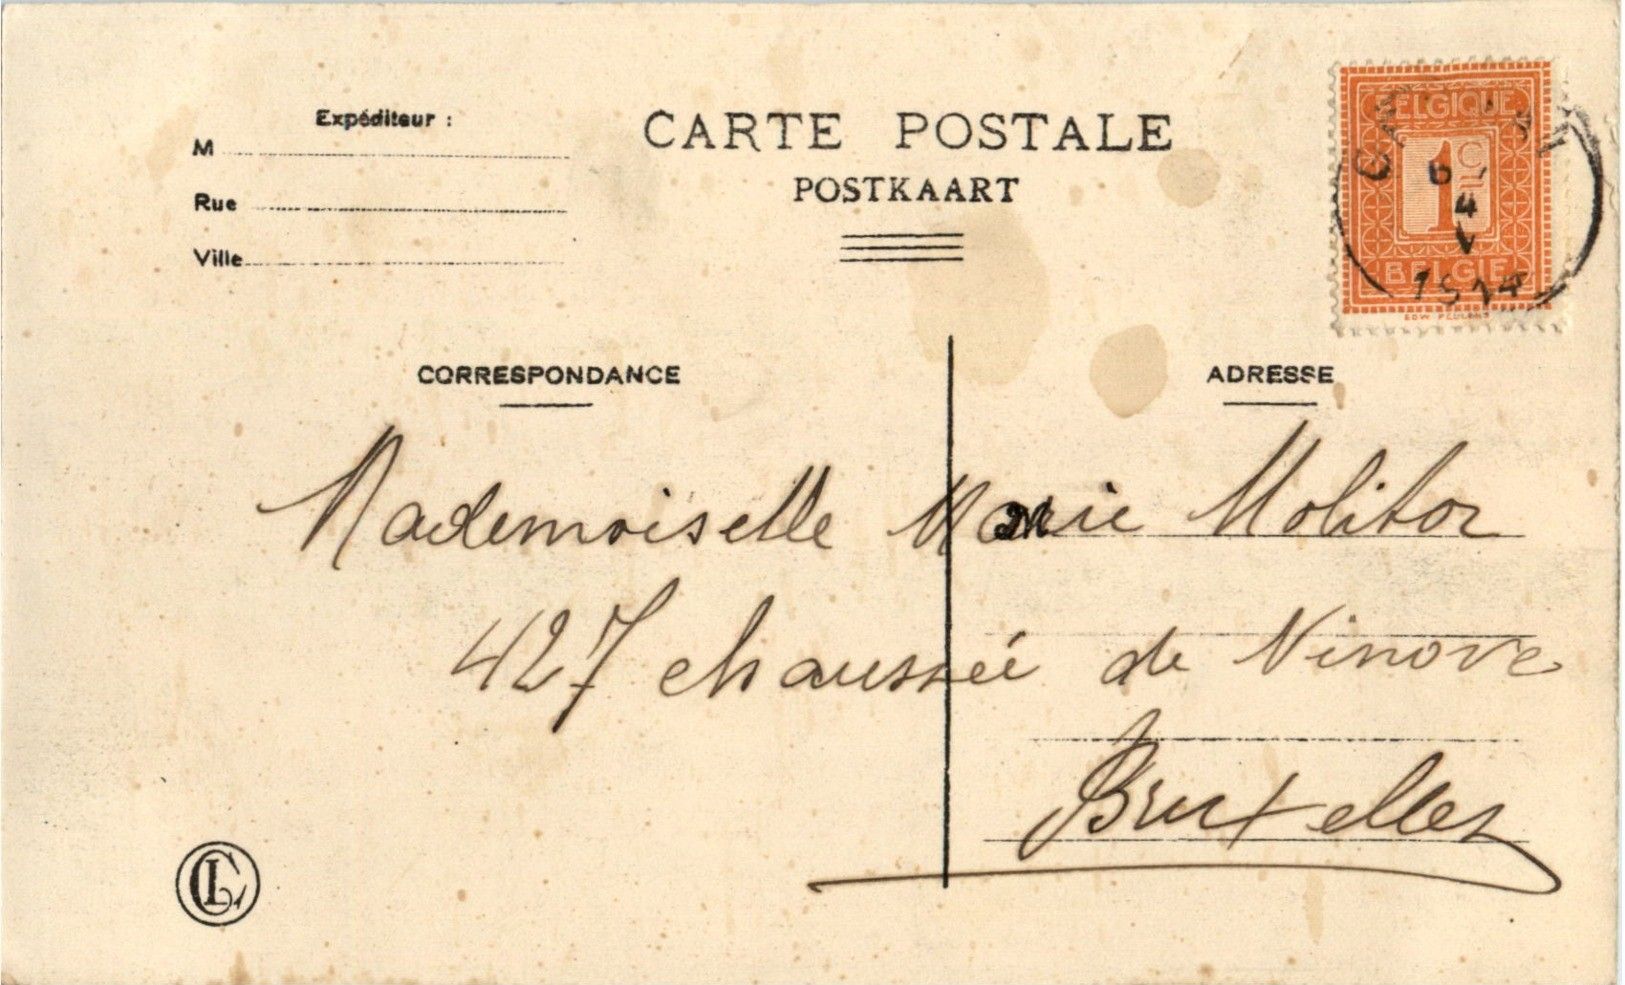 Expéditeur :
M
Rue
Ville
CARTE POSTALE
POSTKAART
BELGIQUE
1 C
BELGIE
EDW PELLENS
6
4
1914
CORRESPONDANCE
ADRESSE
Mademoiselle Marie Molitor
427 chaussée de Ninove
Bruxelles
CL